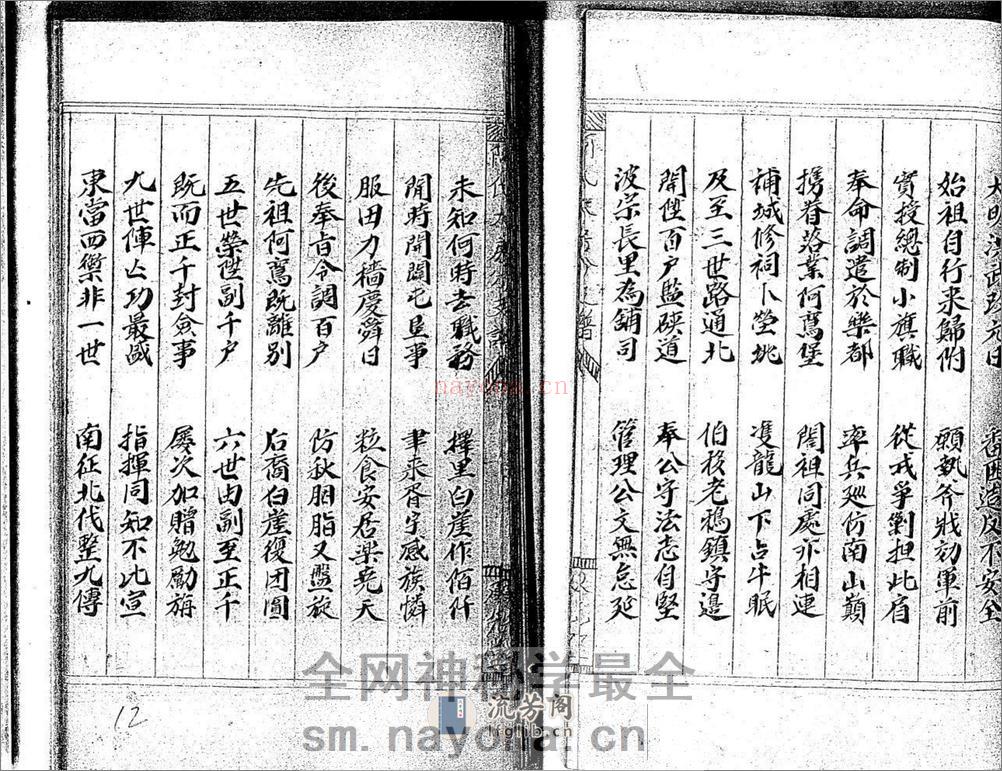 大明洪武改元日　番叛邊庭不安全
始祖自行来歸附　願執斧戕効軍前
實授總制小旗職　從戎爭勦担此肩
奉命調遣於樂都　率兵廵防南山巔
携眷落業何鸾堡　閤祖同處亦相連
補城修祠卜塋兆　雙龍山下占牛眠
及至三世路通北　伯移老鴉鎮守邊
開陞百户監硤道　奉公守法志自堅
波宗長里為舖司　管理公文無怠延
未知何時去職務　擇里白崖作佰仟
閒時開闢屯垦事　聿来胥宇感族憐
服田力穑慶舜日　粒食安居樂堯天
後奉旨令調百户　防秋胭脂又盤旋
先祖何鸾既離别　后裔白崖復团圓
五世榮陞副千户　六世由副至正千
既而正千封佥事　屡次加贈勉勵旃
九世陣亡功最盛　指揮同知不比宣
東當西禦非一世　南征北伐整九傳
12
nayona.cn
全网神秘学最全
流芳阁
lfglib.cn
sm.nayona.cn